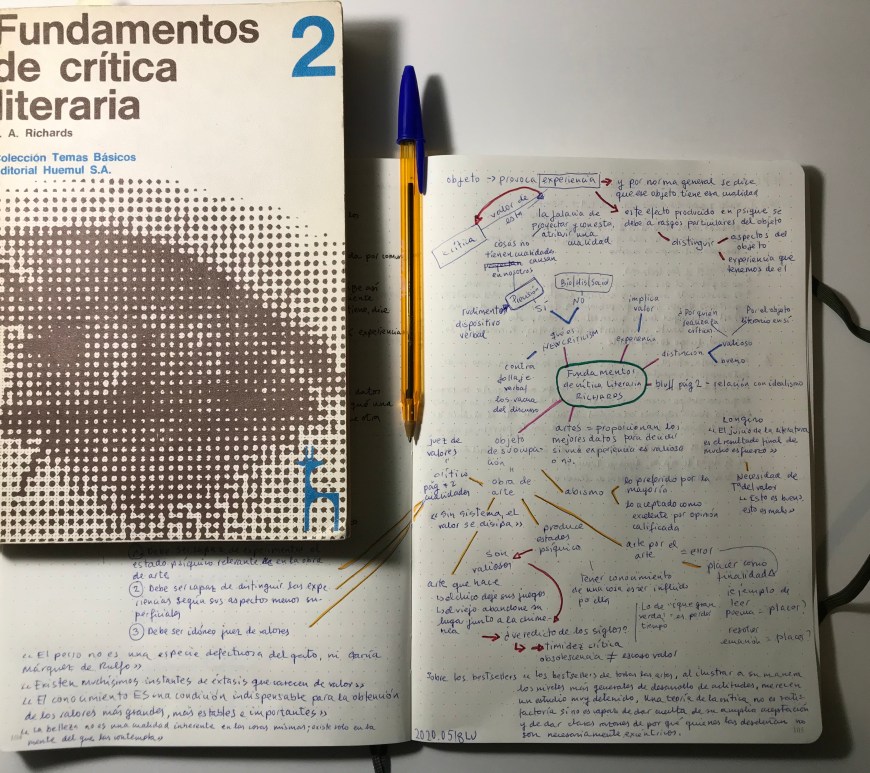 Fundamentos
de crítica
literaria
2
. A. Richards
Colección Temas Básicos
Editorial Huemul S.A.
objeto → provoca experiencia → y por norma general se dice
que ese objeto tiene esa cualidad
valor de
esta
crítica
la falacia de
proyectar con esto,
atribuir una
cualidad
cosas no
tienen cualidades
causan
en nosotros
este efecto producido en psique se
debe a rasgos particulares del objeto
distinguir
aspectos del
objeto
experiencia que
tenemos de él
Sí
NO
rudimentos
dispositivo
verbal
NEW CRITICISM
contra
follaje
verbal
del discurso
implica
valor
experiencia
¿Por quién
realiza la
crítica?
Por el objeto
literario en sí
distinción
valioso
bueno
Fundamentos
de crítica literaria
RICHARDS
bluff pág 2 - relación con idealismo
juez de
valores
=
crítico
pág 42
cualidades
objeto
de su ocupa-
ción
=
obra de
arte
artes = proporcionan los
mejores datos para decidir
si una experiencia es valiosa
o no.
Longino
« El juicio de la literatura
es el resultado final de
mucho esfuerzo »
Necesidad de
Tª del valor
« Esto es bueno,
esto es malo »
abismo
lo preferido por la
mayoría
lo aceptado como
excelente por opinión
calificada
« Sin sistema, el
valor se disipa »
produce
estados
psíquicos
son
valiosos
arte por el
arte
= error
placer como
finalidad
ejemplo de
leer
poema = placer?
resolver
ecuación = placer?
arte que hace
al chico deje sus juegos
al viejo abandone su
lugar junto a la chime-
nea
Tener conocimiento
de una cosa es ser influido
por ella
→ ¿veredicto de los siglos?
→ timidez crítica
obsolescencia ≠ escaso valor
Lo de «qué gran
verdad» es perder
tiempo
estado psíquico relevante en la obra
de arte
② Debe ser capaz de distinguir las expe-
riencias según sus aspectos menos su-
perficiales
③ Debe ser idóneo juez de valores
« El perro no es una especie defectuosa del gato, ni García
Márquez de Rulfo »
« Existen muchísimos instantes de éxtasis que carecen de valor »
« El conocimiento ES una condición indispensable para la obtención
de los valores más grandes, más estables e importantes »
« La belleza no es una cualidad inherente en las cosas mismas; existe solo en la
mente del que las contempla »
Sobre los bestsellers « los bestsellers de todas las artes, al ilustrar a su manera
los niveles más generales de desarrollo de actitudes, merecen
un estudio muy detenido. Una teoría de la crítica no es satis-
factoria si no es capaz de dar cuenta de su amplia aceptación
y de dar claras razones de por qué quienes los desdeñan no
son necesariamente excéntricos.
2020.05|BLU